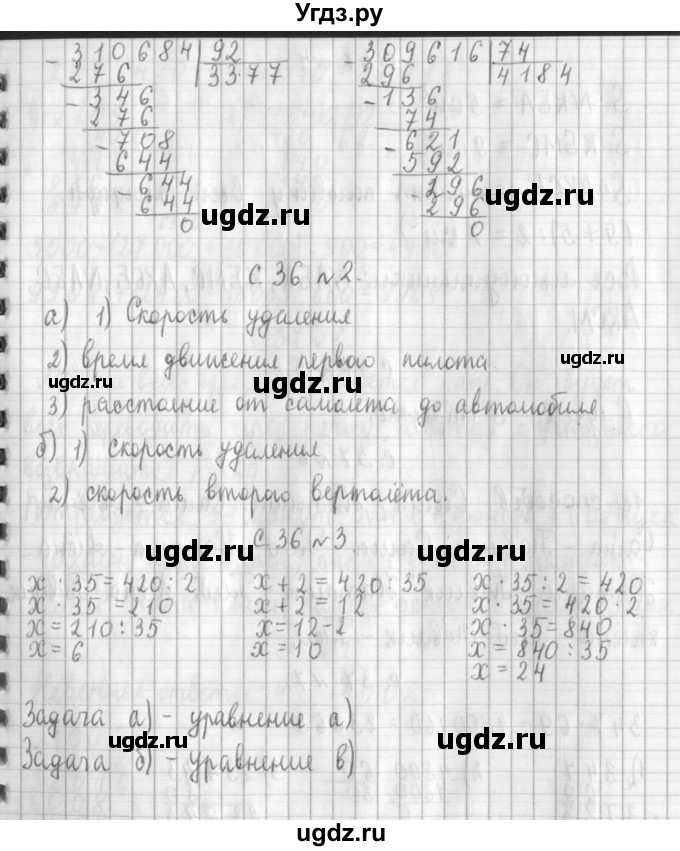 Угдз.ру
- 310684 | 92
276 3377
- 346
276
- 708
644
- 644
644
0
- 309616 | 74
296 4184
- 136
74
- 621
592
- 296
296
0
ugdz.ru
ugdz.ru
С. 36 №2.
а) 1) Скорость удаления
2) время движения первого пилота.
ugdz.ru
ugdz.ru
ugdz.ru
3) расстояние от самолёта до автомобиля.
б) 1) скорость удаления
ugdz.ru
2) скорость второго вертолёта.
С. 36 №3
ugdz.ru
ugdz.ru
x · 35 = 420 : 2
x · 35 = 210
x = 210 : 35
x = 6
x + 2 = 420 : 35
x + 2 = 12
x = 12 - 2
x = 10
x · 35 : 2 = 420
x · 35 = 420 · 2
x · 35 = 840
x = 840 : 35
x = 24
ugdz.ru
ugdz.ru
ugdz.ru
Задача а) - уравнение а)
ugdz.ru
ugdz.ru
Задача б) - уравнение в)
ugdz.ru
ugdz.ru